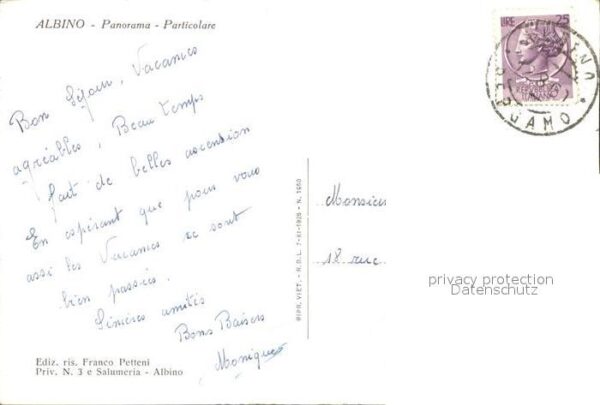 ALBINO - Panorama - Particolare
LIRE 25
BERGAMO
Bon Séjour, Vacances
agréables, Beau temps
fait de belles ascension
En espérant que pour vous
assi les Vacances se sont
bien passées.
Sinières amitiés
Bons Baisers
Monique
Monsieur
18 rue
RIPR. VIET. - R.D.L. 7-XI-1925 - N.
privacy protection
Datenschutz
Ediz. ris. Franco Petteni
Priv. N. 3 e Salumeria - Albino